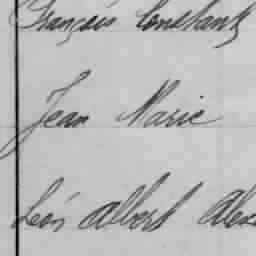 François Constant
Jean Marie
Léon Albert Alex